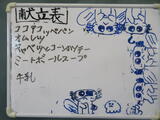 献立表
ココアコッペパン
オムレツ
キャベツとコーンのソテー
ミートボールスープ
牛乳